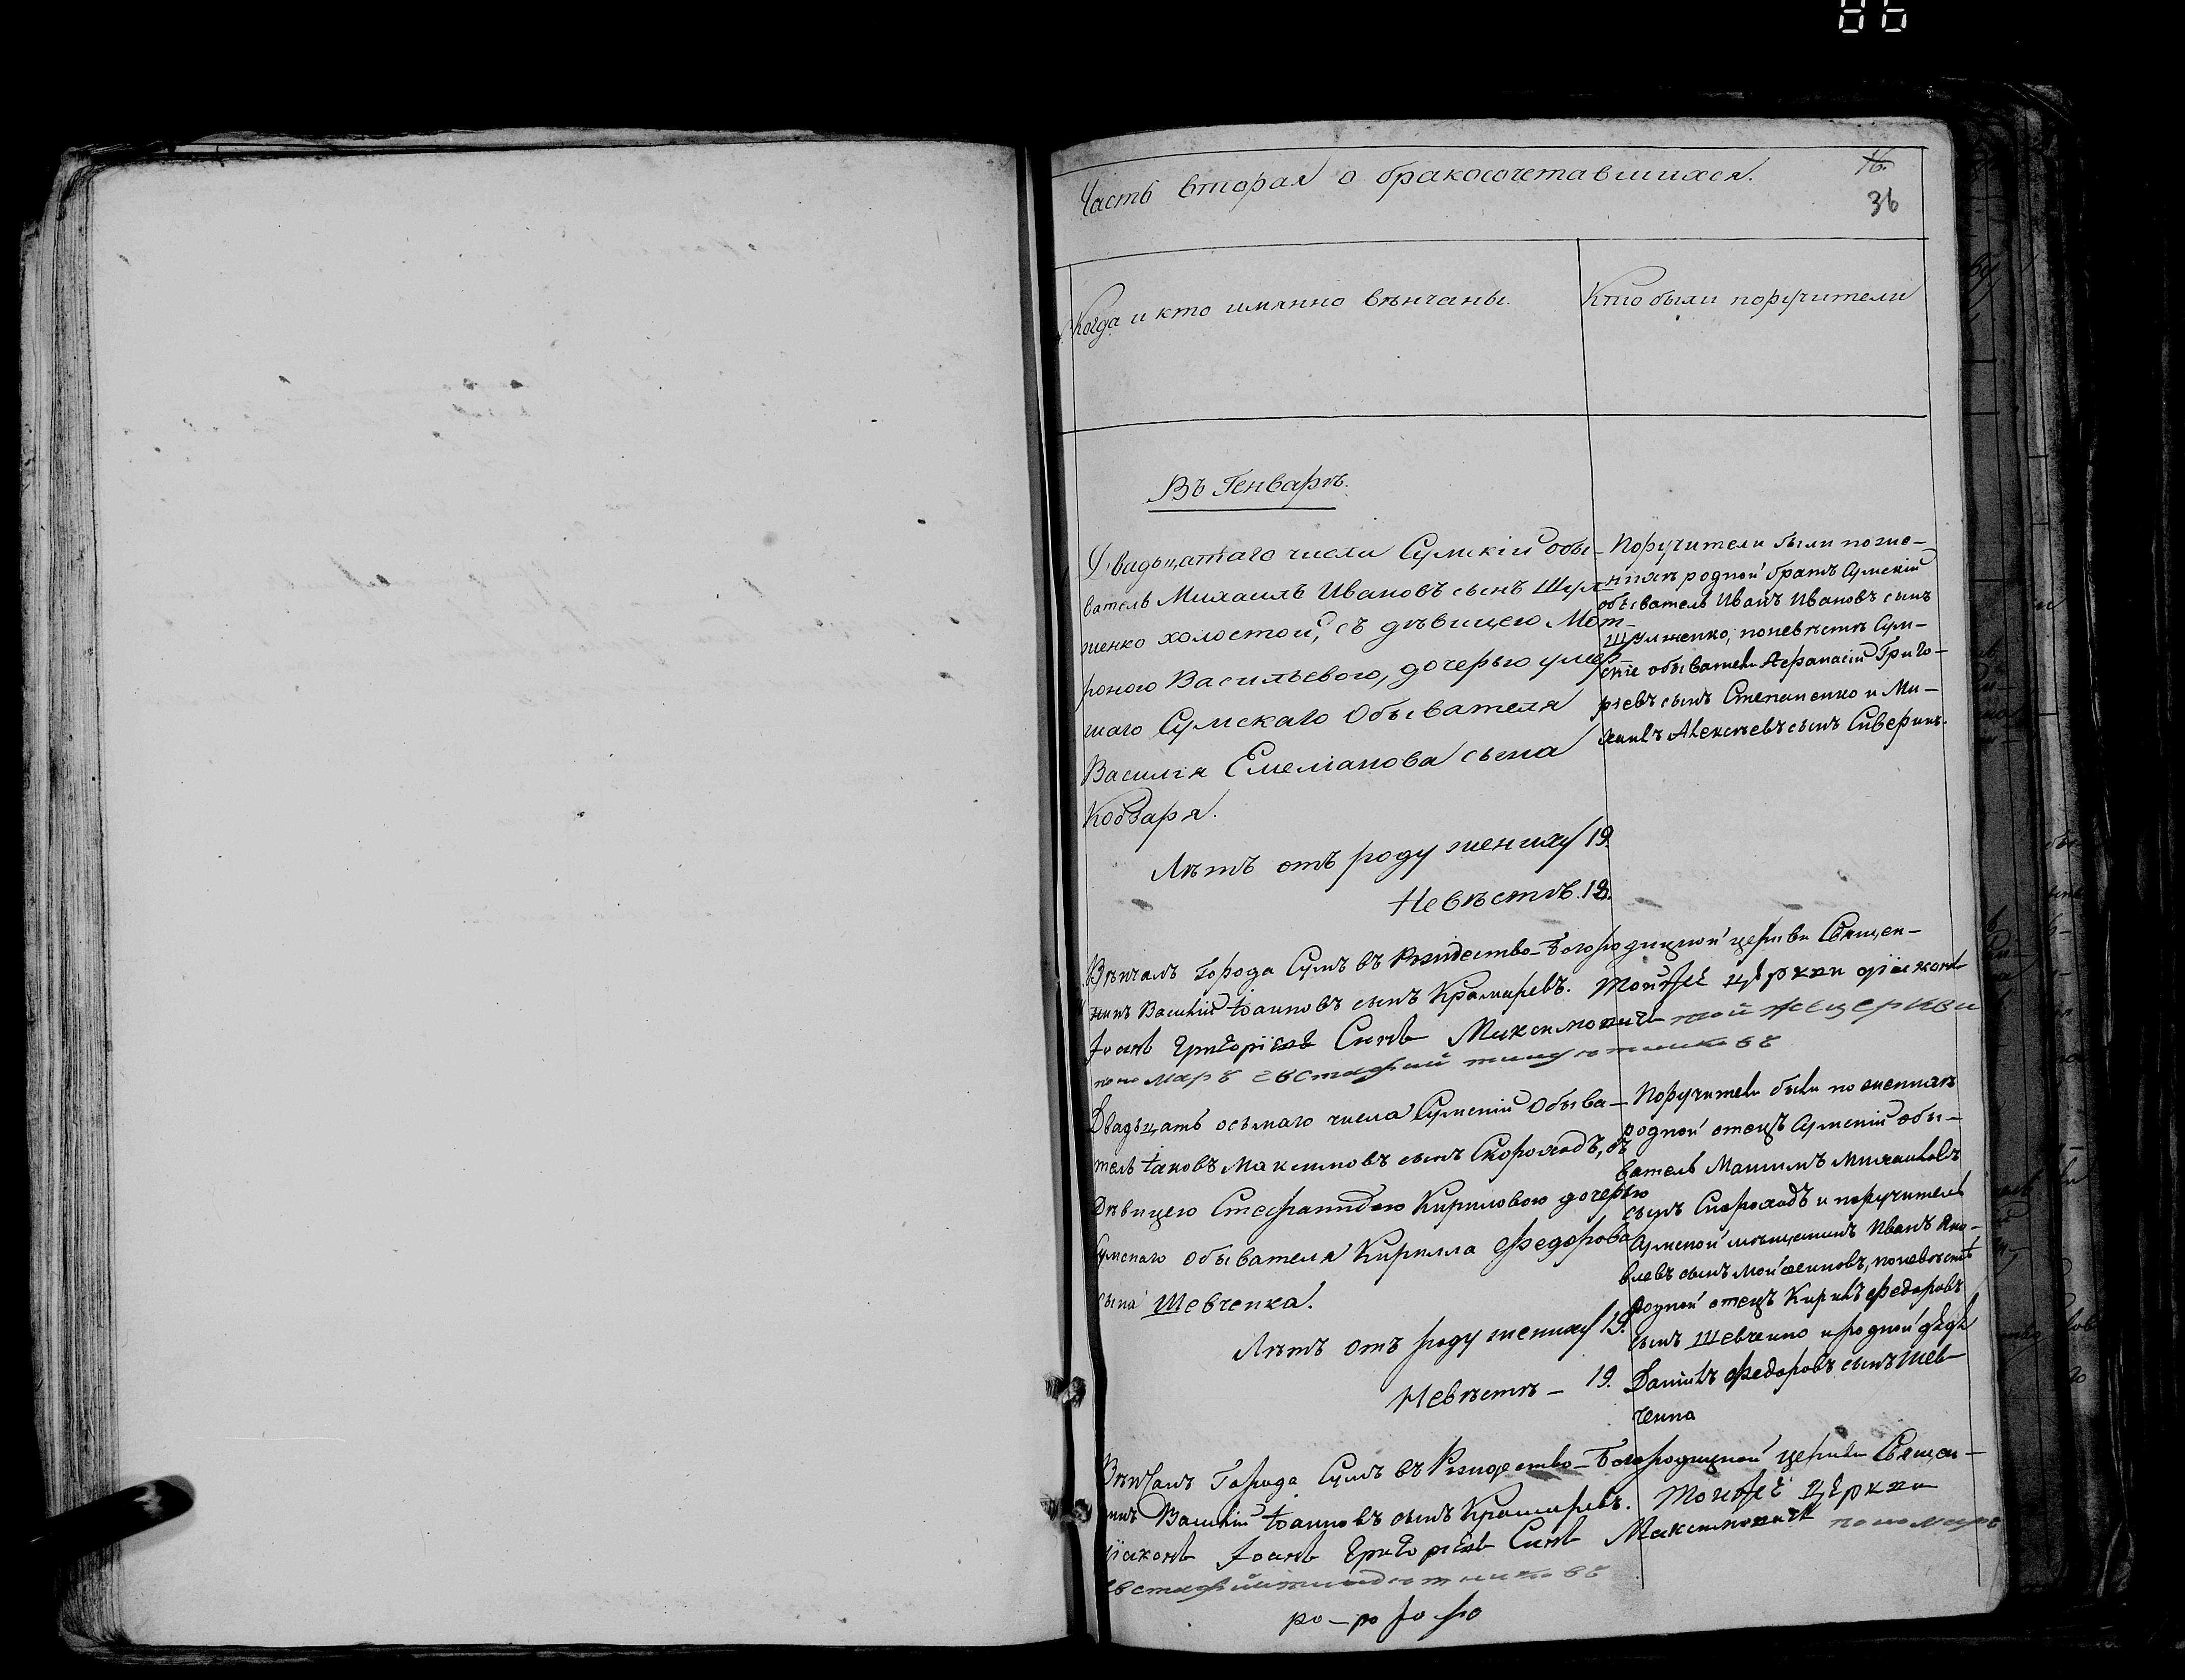 Часть вторая о бракосочетавшихся.
16.
36
Когда и кто имянно вѣнчаны.
Кто были поручители
Въ Генварѣ.
Двадьцатаго числа Сумскій обы-
ватель Михаилъ Ивановъ сынъ Шул-
женко холостой, съ дѣвицею Мот-
роною Васильевою, дочерью умер-
шаго Сумскаго Обывателя
Василія Емеліанова сына
Кобзаря.
Лѣтъ отъ роду жениху 19
Невѣстѣ. 18.
Поручители были по же-
нихѣ родной братъ Сумскій
обыватель Иванъ Ивановъ сынъ
Шулженко, по невѣстѣ Сум-
скіе обыватели Афанасій Григо-
рьевъ сынъ Степаненко и Ми-
хаилъ Алексѣевъ сынъ Сиверинъ.
Вѣнчалъ Города Сумъ въ Рождество-Богородицкой церкви Священ-
никъ Василій Іоанновъ сынъ Крамаревъ. Тойже церкви діаконъ
Іоанъ Григоріевъ Синъ Максимовичъ той же церкви
пономаръ евстафий
Двадьцать осьмаго числа Сумскій Обыва-
тель Іаковъ Максимовъ сынъ Скороходъ, съ
Дѣвицею Стефанидою Кириловою дочерью
Сумскаго обывателя Кирилла Федорова
сына Шевченка.
Лѣтъ отъ роду жениху 19.
Невѣстѣ - 19.
Поручители были по женихѣ
родной отецъ Сумскій обы-
ватель Максимъ Михаиловъ
сынъ Скороходъ и поручитель
Сумской мѣщанинъ Иванъ Яко-
влевъ сынъ Мойсеинковъ, по невѣстѣ
родной отецъ Кирилъ Федоровъ
сынъ Шевченко и родной дядя
Даніилъ Федоровъ сынъ Шев-
ченко
Вѣнчалъ Города Сумъ въ Рождество-Богородицкой церкви Священ-
никъ Василій Іоанновъ сынъ Крамаревъ. Тойже Церкви
діаконъ Іоанъ Григоріевъ Синъ Максимовичъ пономаръ
евстафий